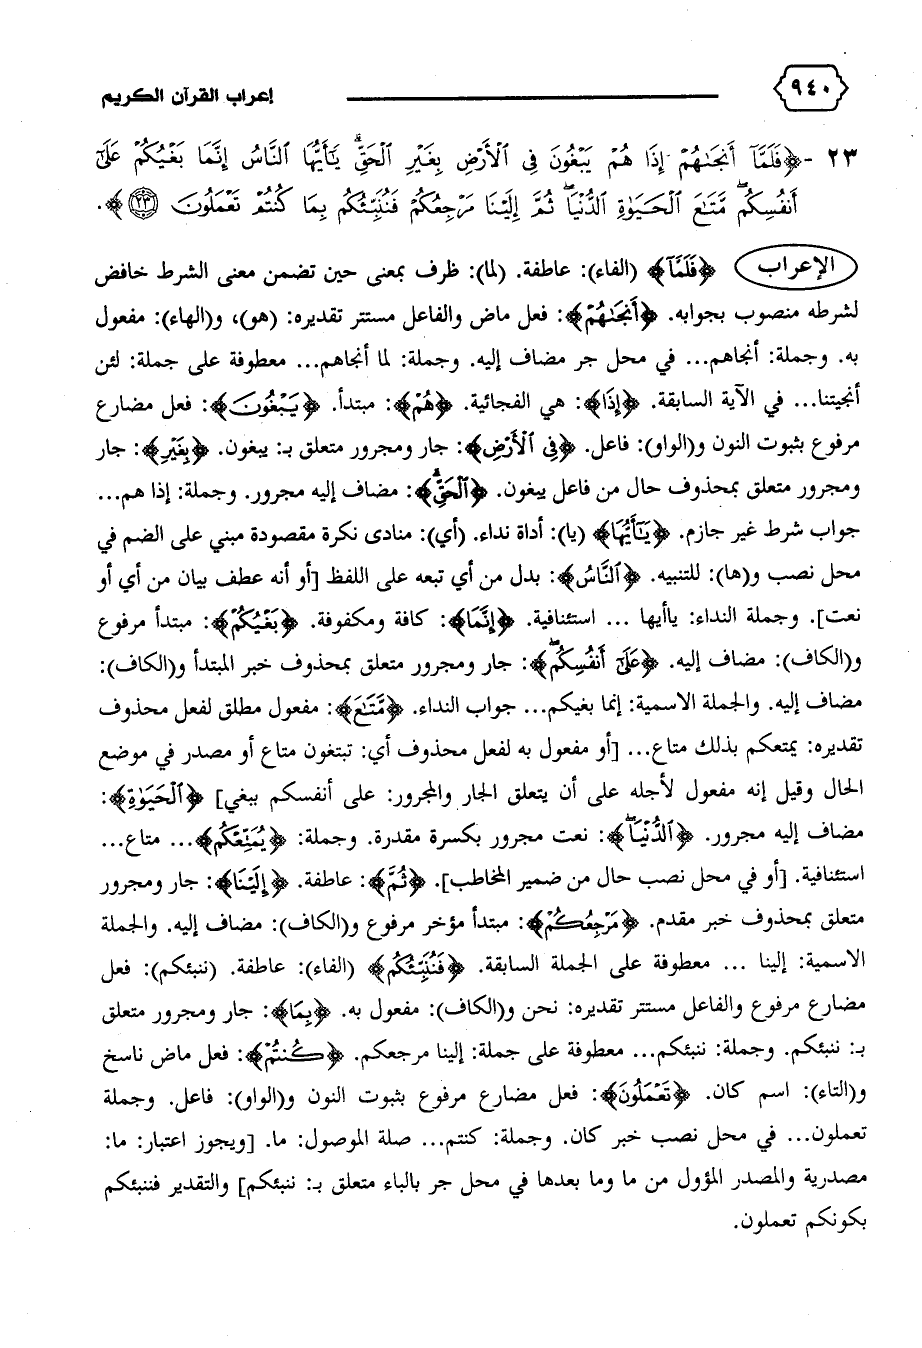 ٩٤٠ إعراب القرآن الكريم
٢٣ - ﴿فَلَمَّآ أَنجَىٰهُمْ إِذَا هُمْ يَبْغُونَ فِى ٱلْأَرْضِ بِغَيْرِ ٱلْحَقِّ ۗ يَـٰٓأَيُّهَا ٱلنَّاسُ إِنَّمَا بَغْيُكُمْ عَلَىٰٓ
أَنفُسِكُم ۖ مَّتَـٰعَ ٱلْحَيَوٰةِ ٱلدُّنْيَا ۖ ثُمَّ إِلَيْنَا مَرْجِعُكُمْ فَنُنَبِّئُكُم بِمَا كُنتُمْ تَعْمَلُونَ ۝٢٣﴾.
الإعراب ﴿فَلَمَّآ﴾ (الفاء): عاطفة. (لما): ظرف بمعنى حين تضمن معنى الشرط خافض
لشرطه منصوب بجوابه. ﴿أَنجَىٰهُمْ﴾: فعل ماض والفاعل مستتر تقديره: (هو)، و(الهاء): مفعول
به. وجملة: أنجاهم... في محل جر مضاف إليه. وجملة: لما أنجاهم... معطوفة على جملة: لئن
أنجيتنا... في الآية السابقة. ﴿إِذَا﴾: هي الفجائية. ﴿هُمْ﴾: مبتدأ. ﴿يَبْغُونَ﴾: فعل مضارع
مرفوع بثبوت النون و(الواو): فاعل. ﴿فِى ٱلْأَرْضِ﴾: جار ومجرور متعلق بـ: يبغون. ﴿بِغَيْرِ﴾: جار
ومجرور متعلق بمحذوف حال من فاعل يبغون. ﴿ٱلْحَقِّ ۗ﴾: مضاف إليه مجرور. وجملة: إذا هم...
جواب شرط غير جازم. ﴿يَـٰٓأَيُّهَا﴾ (يا): أداة نداء. (أي): منادى نكرة مقصودة مبني على الضم في
محل نصب و(ها): للتنبيه. ﴿ٱلنَّاسُ﴾: بدل من أي تبعه على اللفظ [أو أنه عطف بيان من أي أو
نعت]. وجملة النداء: ياأيها ... استئنافية. ﴿إِنَّمَا﴾: كافة ومكفوفة. ﴿بَغْيُكُمْ﴾: مبتدأ مرفوع
و(الكاف): مضاف إليه. ﴿عَلَىٰٓ أَنفُسِكُم ۖ﴾: جار ومجرور متعلق بمحذوف خبر المبتدأ و(الكاف):
مضاف إليه. والجملة الاسمية: إنما بغيكم... جواب النداء. ﴿مَّتَـٰعَ﴾: مفعول مطلق لفعل محذوف
تقديره: يمتعكم بذلك متاع... [أو مفعول به لفعل محذوف أي: تبتغون متاع أو مصدر في موضع
الحال وقيل إنه مفعول لأجله على أن يتعلق الجار والمجرور: على أنفسكم ببغي] ﴿ٱلْحَيَوٰةِ﴾:
مضاف إليه مجرور. ﴿ٱلدُّنْيَا ۖ﴾: نعت مجرور بكسرة مقدرة. وجملة: ﴿يُمَتِّعْكُم﴾... متاع...
استئنافية. [أو في محل نصب حال من ضمير المخاطب]. ﴿ثُمَّ﴾: عاطفة. ﴿إِلَيْنَا﴾: جار ومجرور
متعلق بمحذوف خبر مقدم. ﴿مَرْجِعُكُمْ﴾: مبتدأ مؤخر مرفوع و(الكاف): مضاف إليه. والجملة
الاسمية: إلينا ... معطوفة على الجملة السابقة. ﴿فَنُنَبِّئُكُم﴾ (الفاء): عاطفة. (ننبئكم): فعل
مضارع مرفوع والفاعل مستتر تقديره: نحن و(الكاف): مفعول به. ﴿بِمَا﴾: جار ومجرور متعلق
بـ: ننبئكم. وجملة: ننبئكم... معطوفة على جملة: إلينا مرجعكم. ﴿كُنتُمْ﴾: فعل ماض ناسخ
و(التاء): اسم كان. ﴿تَعْمَلُونَ﴾: فعل مضارع مرفوع بثبوت النون و(الواو): فاعل. وجملة
تعملون... في محل نصب خبر كان. وجملة: كنتم... صلة الموصول: ما. [ويجوز اعتبار: ما:
مصدرية والمصدر المؤول من ما وما بعدها في محل جر بالباء متعلق بـ: ننبئكم] والتقدير فننبئكم
بكونكم تعملون.